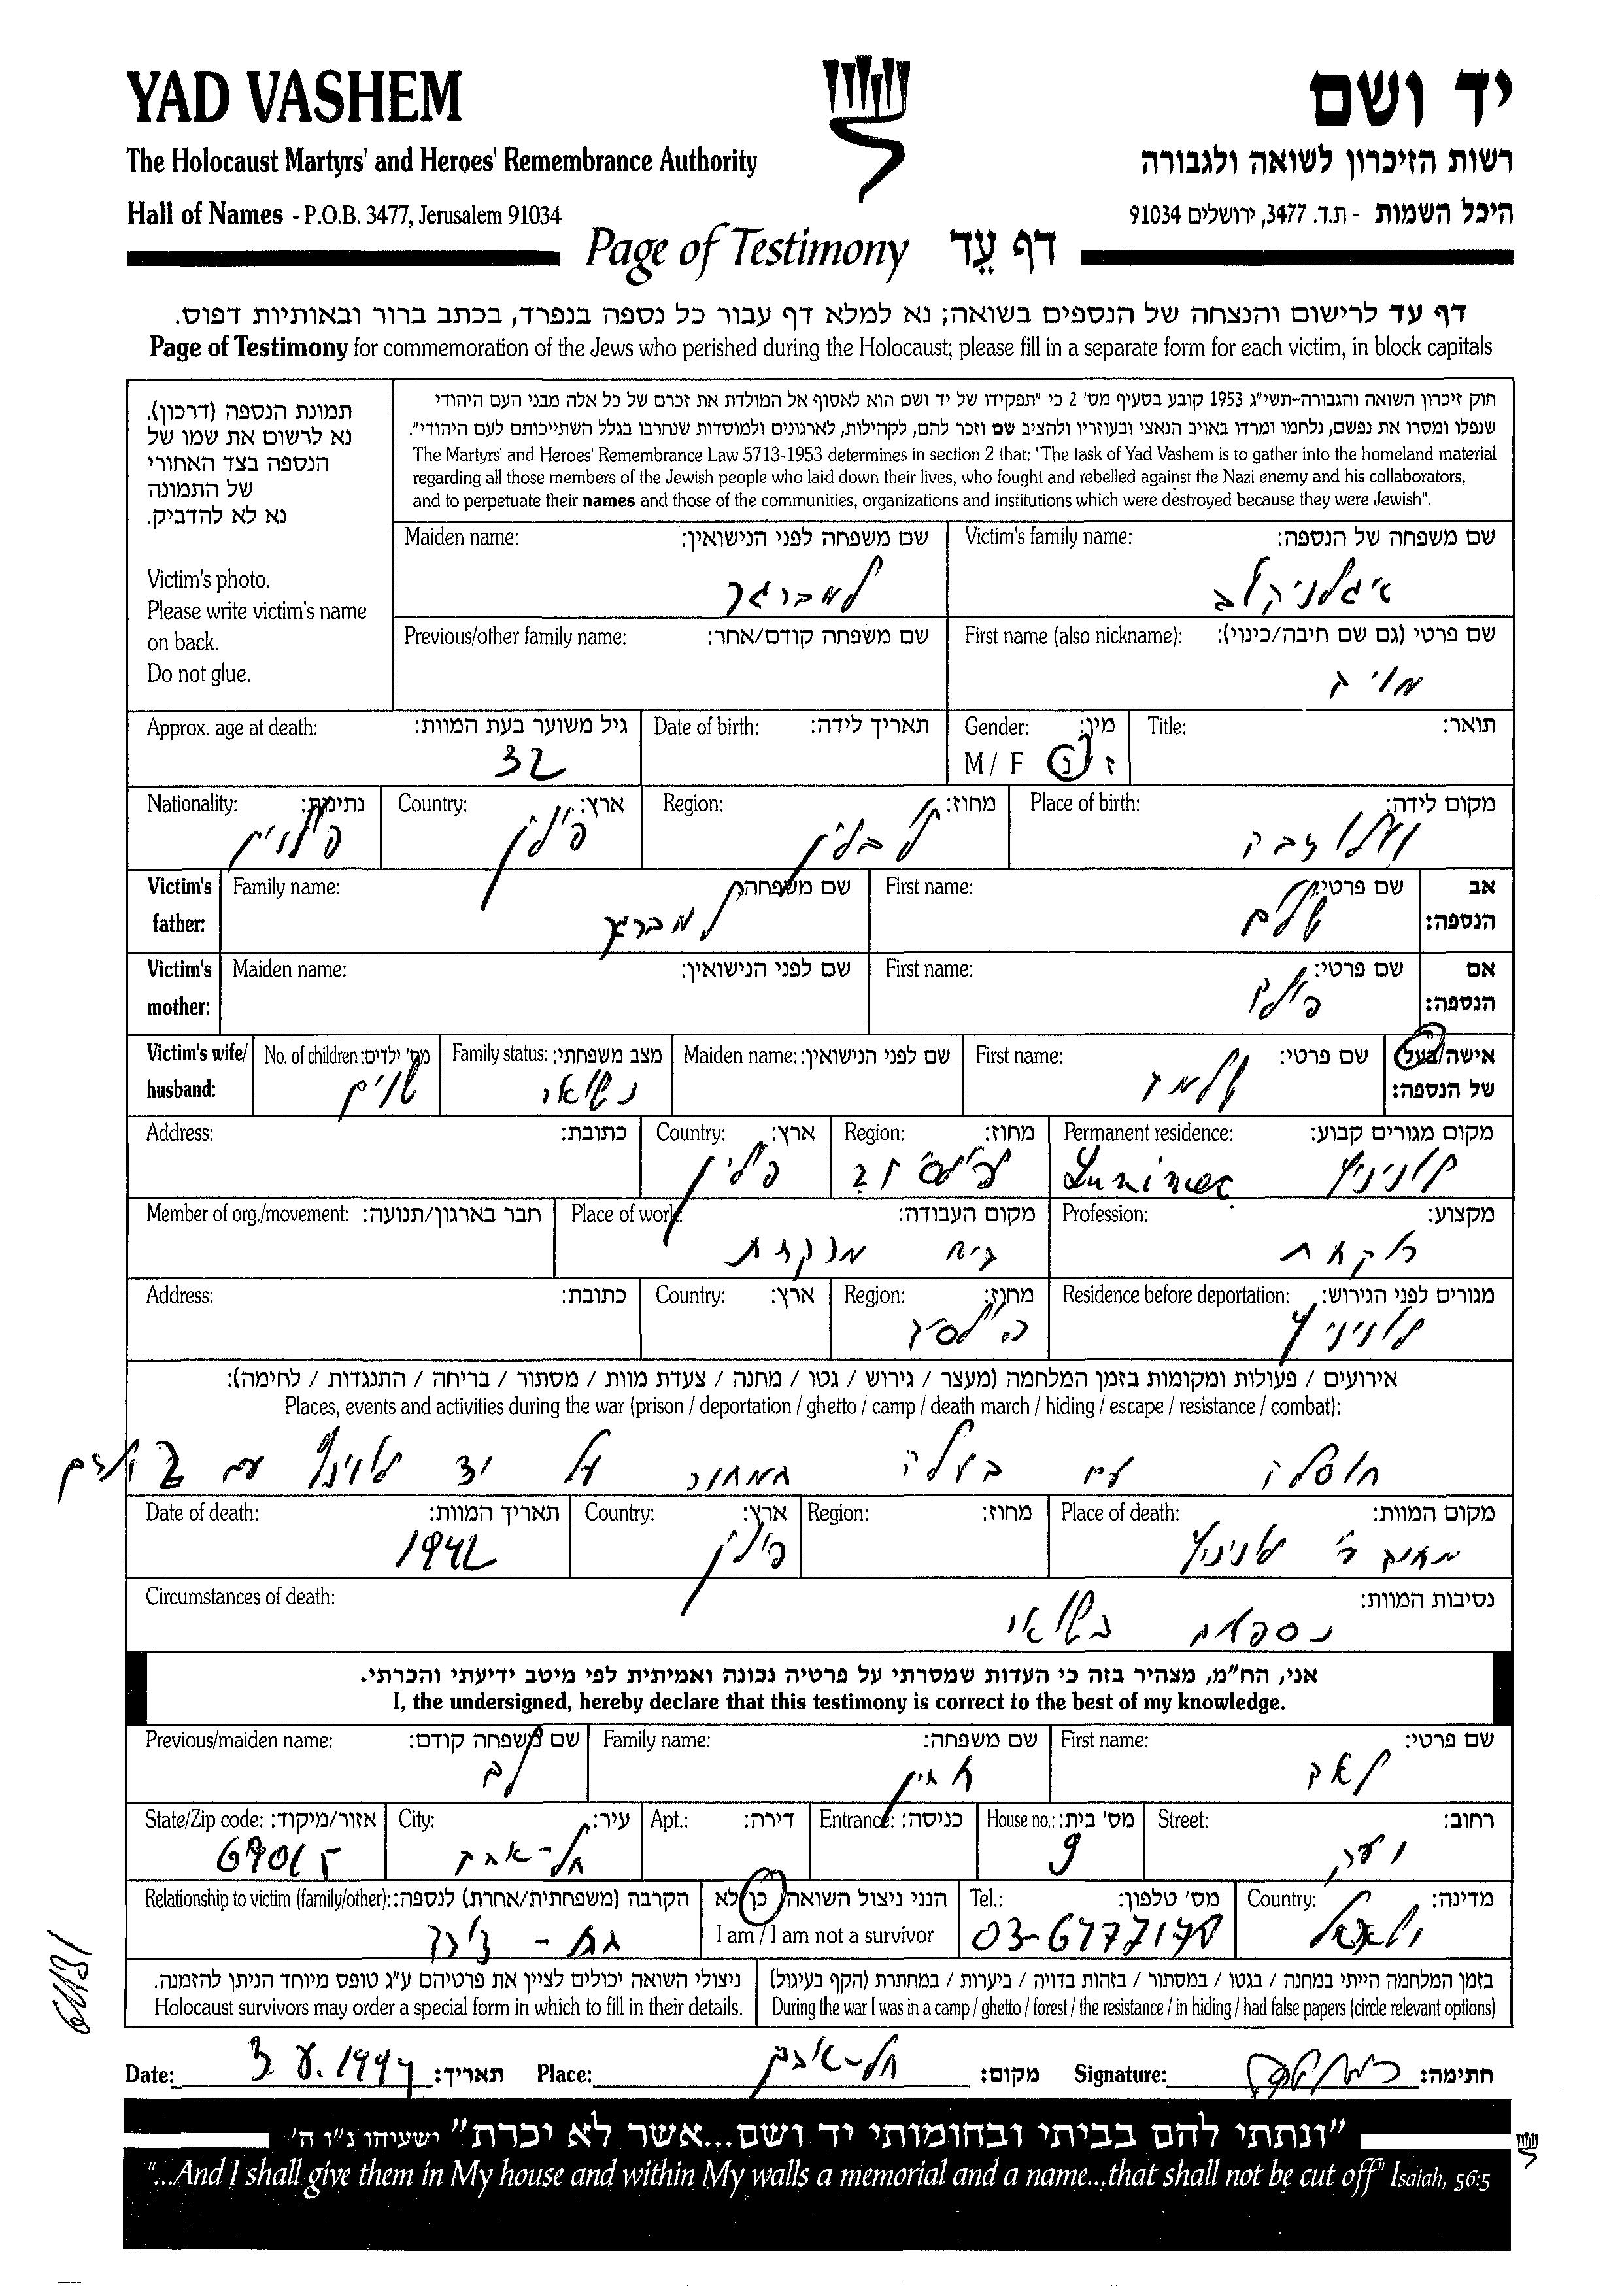 YAD VASHEM
יד ושם
The Holocaust Martyrs' and Heroes' Remembrance Authority
רשות הזיכרון לשואה ולגבורה
Hall of Names - P.O.B. 3477, Jerusalem 91034
היכל השמות - ת.ד. 3477, ירושלים 91034
Page of Testimony דף עֵד
דף עד לרישום והנצחה של הנספים בשואה; נא למלא דף עבור כל נספה בנפרד, בכתב ברור ובאותיות דפוס.
Page of Testimony for commemoration of the Jews who perished during the Holocaust; please fill in a separate form for each victim, in block capitals
תמונת הנספה (דרכון).
נא לרשום את שמו של
הנספה בצד האחורי
של התמונה
נא לא להדביק.
Victim's photo.
Please write victim's name
on back.
Do not glue.
חוק זיכרון השואה והגבורה-תשי"ג 1953 קובע בסעיף מס' 2 כי "תפקידו של יד ושם הוא לאסוף אל המולדת את זכרם של כל אלה מבני העם היהודי
שנפלו ומסרו את נפשם, נלחמו ומרדו באויב הנאצי ובעוזריו ולהציב שם וזכר להם, לקהילות, לארגונים ולמוסדות שנחרבו בגלל השתייכותם לעם היהודי".
The Martyrs' and Heroes' Remembrance Law 5713-1953 determines in section 2 that: "The task of Yad Vashem is to gather into the homeland material
regarding all those members of the Jewish people who laid down their lives, who fought and rebelled against the Nazi enemy and his collaborators,
and to perpetuate their names and those of the communities, organizations and institutions which were destroyed because they were Jewish".
Victim's family name: שם משפחה של הנספה:
Maiden name: שם משפחה לפני הנישואין:
למברגר
First name (also nickname): שם פרטי (גם שם חיבה/כינוי):
Previous/other family name: שם משפחה קודם/אחר:
Title: תואר:
Gender: מין:
M / F ז / נ
Date of birth: תאריך לידה:
Approx. age at death: גיל משוער בעת המוות:
32
Place of birth: מקום לידה:
Region: מחוז:
לבלין
Country: ארץ:
פולין
Nationality: נתינות:
Victim's father: אב הנספה:
First name: שם פרטי:
שלום
Family name: שם משפחה:
Victim's mother: אם הנספה:
First name: שם פרטי:
Maiden name: שם לפני הנישואין:
Victim's wife/husband: אישה/בעל של הנספה:
First name: שם פרטי:
Maiden name: שם לפני הנישואין:
Family status: מצב משפחתי:
נשואי
No. of children: מס' ילדים:
שניים
Permanent residence: מקום מגורים קבוע:
לוניניץ
Region: מחוז:
Country: ארץ:
פולין
Address: כתובת:
Profession: מקצוע:
רוקחת
Place of work: מקום העבודה:
בית מרקחת
Member of org./movement: חבר בארגון/תנועה:
Residence before deportation: מגורים לפני הגירוש:
לוניניץ
Region: מחוז:
Country: ארץ:
Address: כתובת:
אירועים / פעולות ומקומות בזמן המלחמה (מעצר / גירוש / גטו / מחנה / צעדת מוות / מסתור / בריחה / התנגדות / לחימה):
Places, events and activities during the war (prison / deportation / ghetto / camp / death march / hiding / escape / resistance / combat):
חוסלה עם בעלה על יד עם 2
Place of death: מקום המוות:
לוניניץ
Region: מחוז:
Country: ארץ:
פולין
Date of death: תאריך המוות:
1942
Circumstances of death: נסיבות המוות:
אני, הח"מ, מצהיר בזה כי העדות שמסרתי על פרטיה נכונה ואמיתית לפי מיטב ידיעתי והכרתי.
I, the undersigned, hereby declare that this testimony is correct to the best of my knowledge.
First name: שם פרטי:
Family name: שם משפחה:
Previous/maiden name: שם משפחה קודם:
Street: רחוב:
House no.: מס' בית:
9
Entrance: כניסה:
Apt.: דירה:
City: עיר:
תל-אביב
State/Zip code: אזור/מיקוד:
Country: מדינה:
ישראל
Tel.: מס' טלפון:
הנני ניצול השואה: כן / לא
I am / I am not a survivor
Relationship to victim (family/other): הקרבה (משפחתית/אחרת) לנספה:
בזמן המלחמה הייתי במחנה / בגטו / במסתור / בזהות בדויה / ביערות / במחתרת (הקף בעיגול)
During the war I was in a camp / ghetto / forest / the resistance / in hiding / had false papers (circle relevant options)
ניצולי השואה יכולים לציין את פרטיהם ע"ג טופס מיוחד הניתן להזמנה.
Holocaust survivors may order a special form in which to fill in their details.
Date: תאריך: Place: תל-אביב מקום: Signature: חתימה:
"ונתתי להם בביתי ובחומותי יד ושם...אשר לא יכרת" ישעיהו נ"ו ה'
"...And I shall give them in My house and within My walls a memorial and a name...that shall not be cut off" Isaiah, 56:5